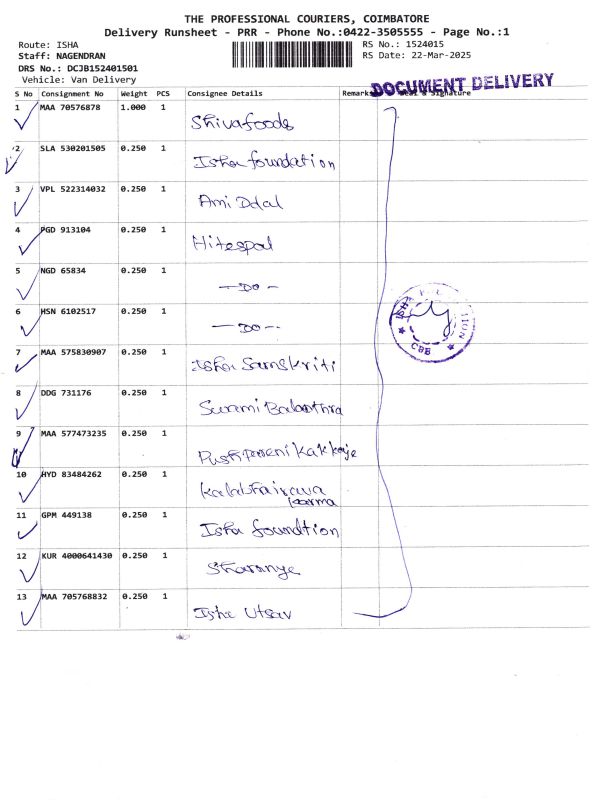 THE PROFESSIONAL COURIERS, COIMBATORE
Delivery Runsheet - PRR - Phone No.:0422-3505555 - Page No.:1
Route: ISHA
Staff: NAGENDRAN
DRS No.: DCJB152401501
Vehicle: Van Delivery
RS No.: 1524015
RS Date: 22-Mar-2025
DOCUMENT DELIVERY
S No Consignment No Weight PCS Consignee Details Remarks Seal & Signature
1 MAA 70576878 1.000 1 Shivafoods
2 SLA 530201505 0.250 1 Isha foundation
3 VPL 522314032 0.250 1 Ami Ddal
4 PGD 913104 0.250 1 Hitespal
5 NGD 65834 0.250 1 —DO—
6 HSN 6102517 0.250 1 —DO—
7 MAA 575830907 0.250 1 Isha Samskriti
8 DDG 731176 0.250 1 Swami
9 MAA 577473235 0.250 1
10 HYD 83484262 0.250 1 Kalabhairava
karma
11 GPM 449138 0.250 1 Isha foundtion
12 KUR 4000641430 0.250 1 Sharanye
13 MAA 705768832 0.250 1 Isha Utsav
CBB